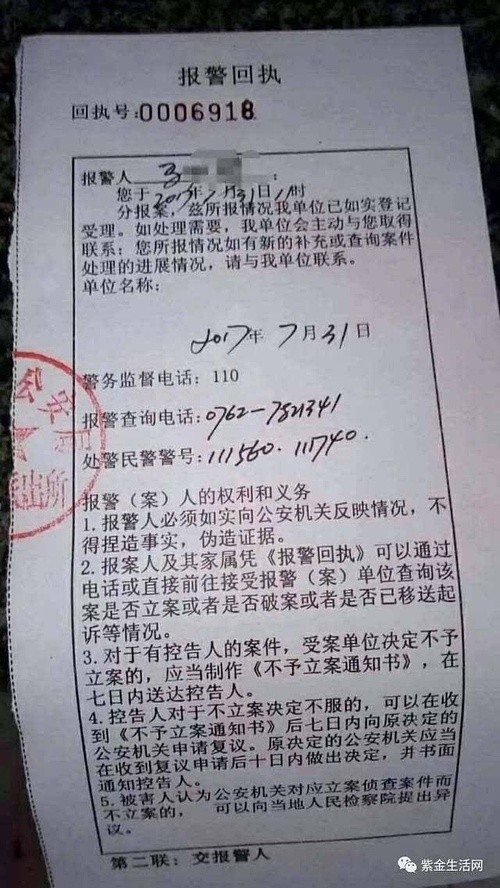 报警回执
回执号:0006918
报警人
您于2017年7月31日11时
分报案，兹所报情况我单位已如实登记
受理。如处理需要，我单位会主动与您取得
联系；您所报情况如有新的补充或查询案件
处理的进展情况，请与我单位联系。
单位名称：
2017年7月31日
警务监督电话：110
报警查询电话：0762-7821341
处警民警警号：111560. 111740.
公安局
出所
报警（案）人的权利和义务
1. 报警人必须如实向公安机关反映情况，不
得捏造事实，伪造证据。
2. 报案人及其家属凭《报警回执》可以通过
电话或直接前往接受报警（案）单位查询该
案是否立案或者是否破案或者是否已移送起
诉等情况。
3. 对于有控告人的案件，受案单位决定不予
立案的，应当制作《不予立案通知书》，在
七日内送达控告人。
4. 控告人对于不立案决定不服的，可以在收
到《不予立案通知书》后七日内向原决定的
公安机关申请复议。原决定的公安机关应当
在收到复议申请后十日内做出决定，并书面
通知控告人。
5. 被害人认为公安机关对应立案侦查案件而
不立案的， 可以向当地人民检察院提出异
议。
第二联：交报警人
紫金生活网